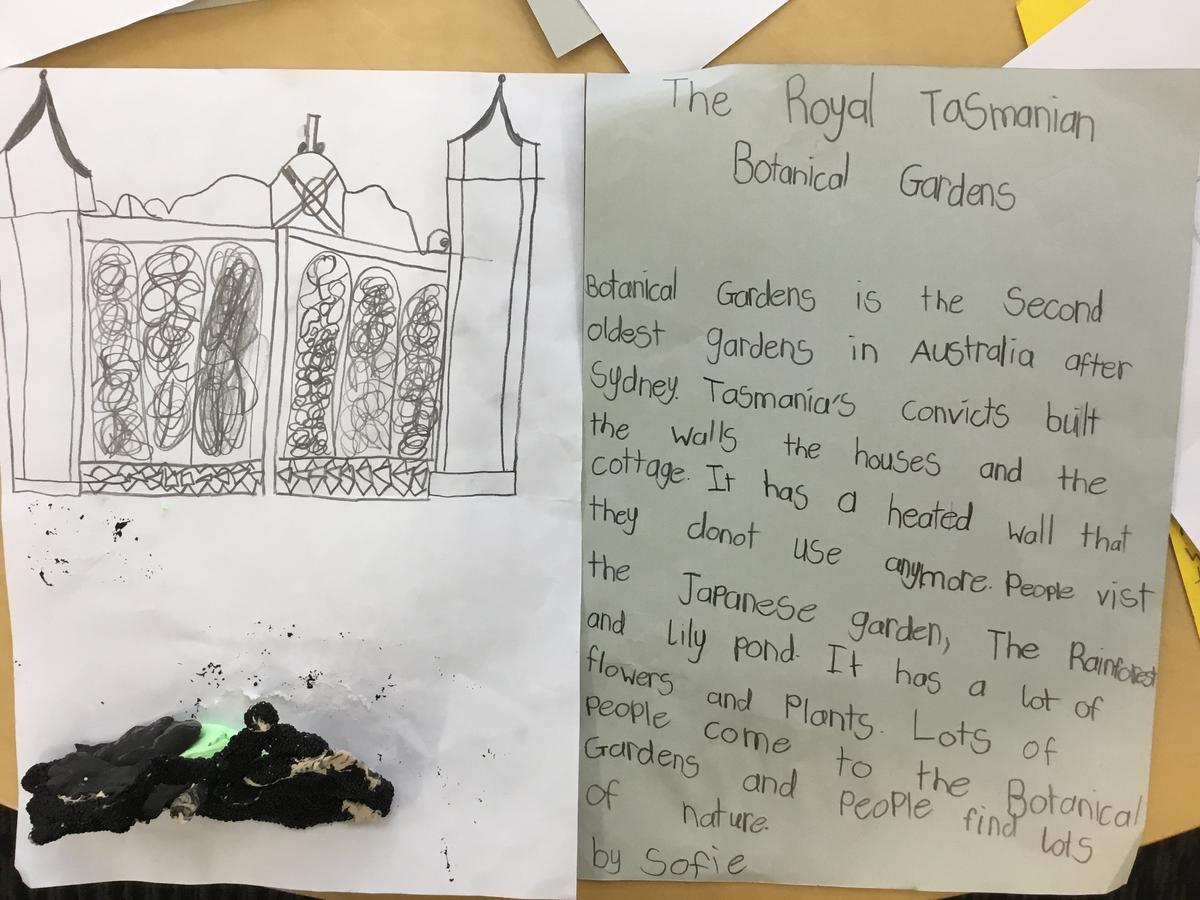 The Royal Tasmanian
Botanical Gardens
Botanical Gardens is the Second
oldest gardens in Australia after
Sydney. Tasmania's convicts built
the walls the houses and the
cottage. It has a heated wall that
they donot use anymore. People vist
the Japanese garden, The Rainforest
and Lily pond. It has a lot of
flowers and Plants. Lots of
people come to the Botanical
Gardens and People find lots
of nature.
by Sofie